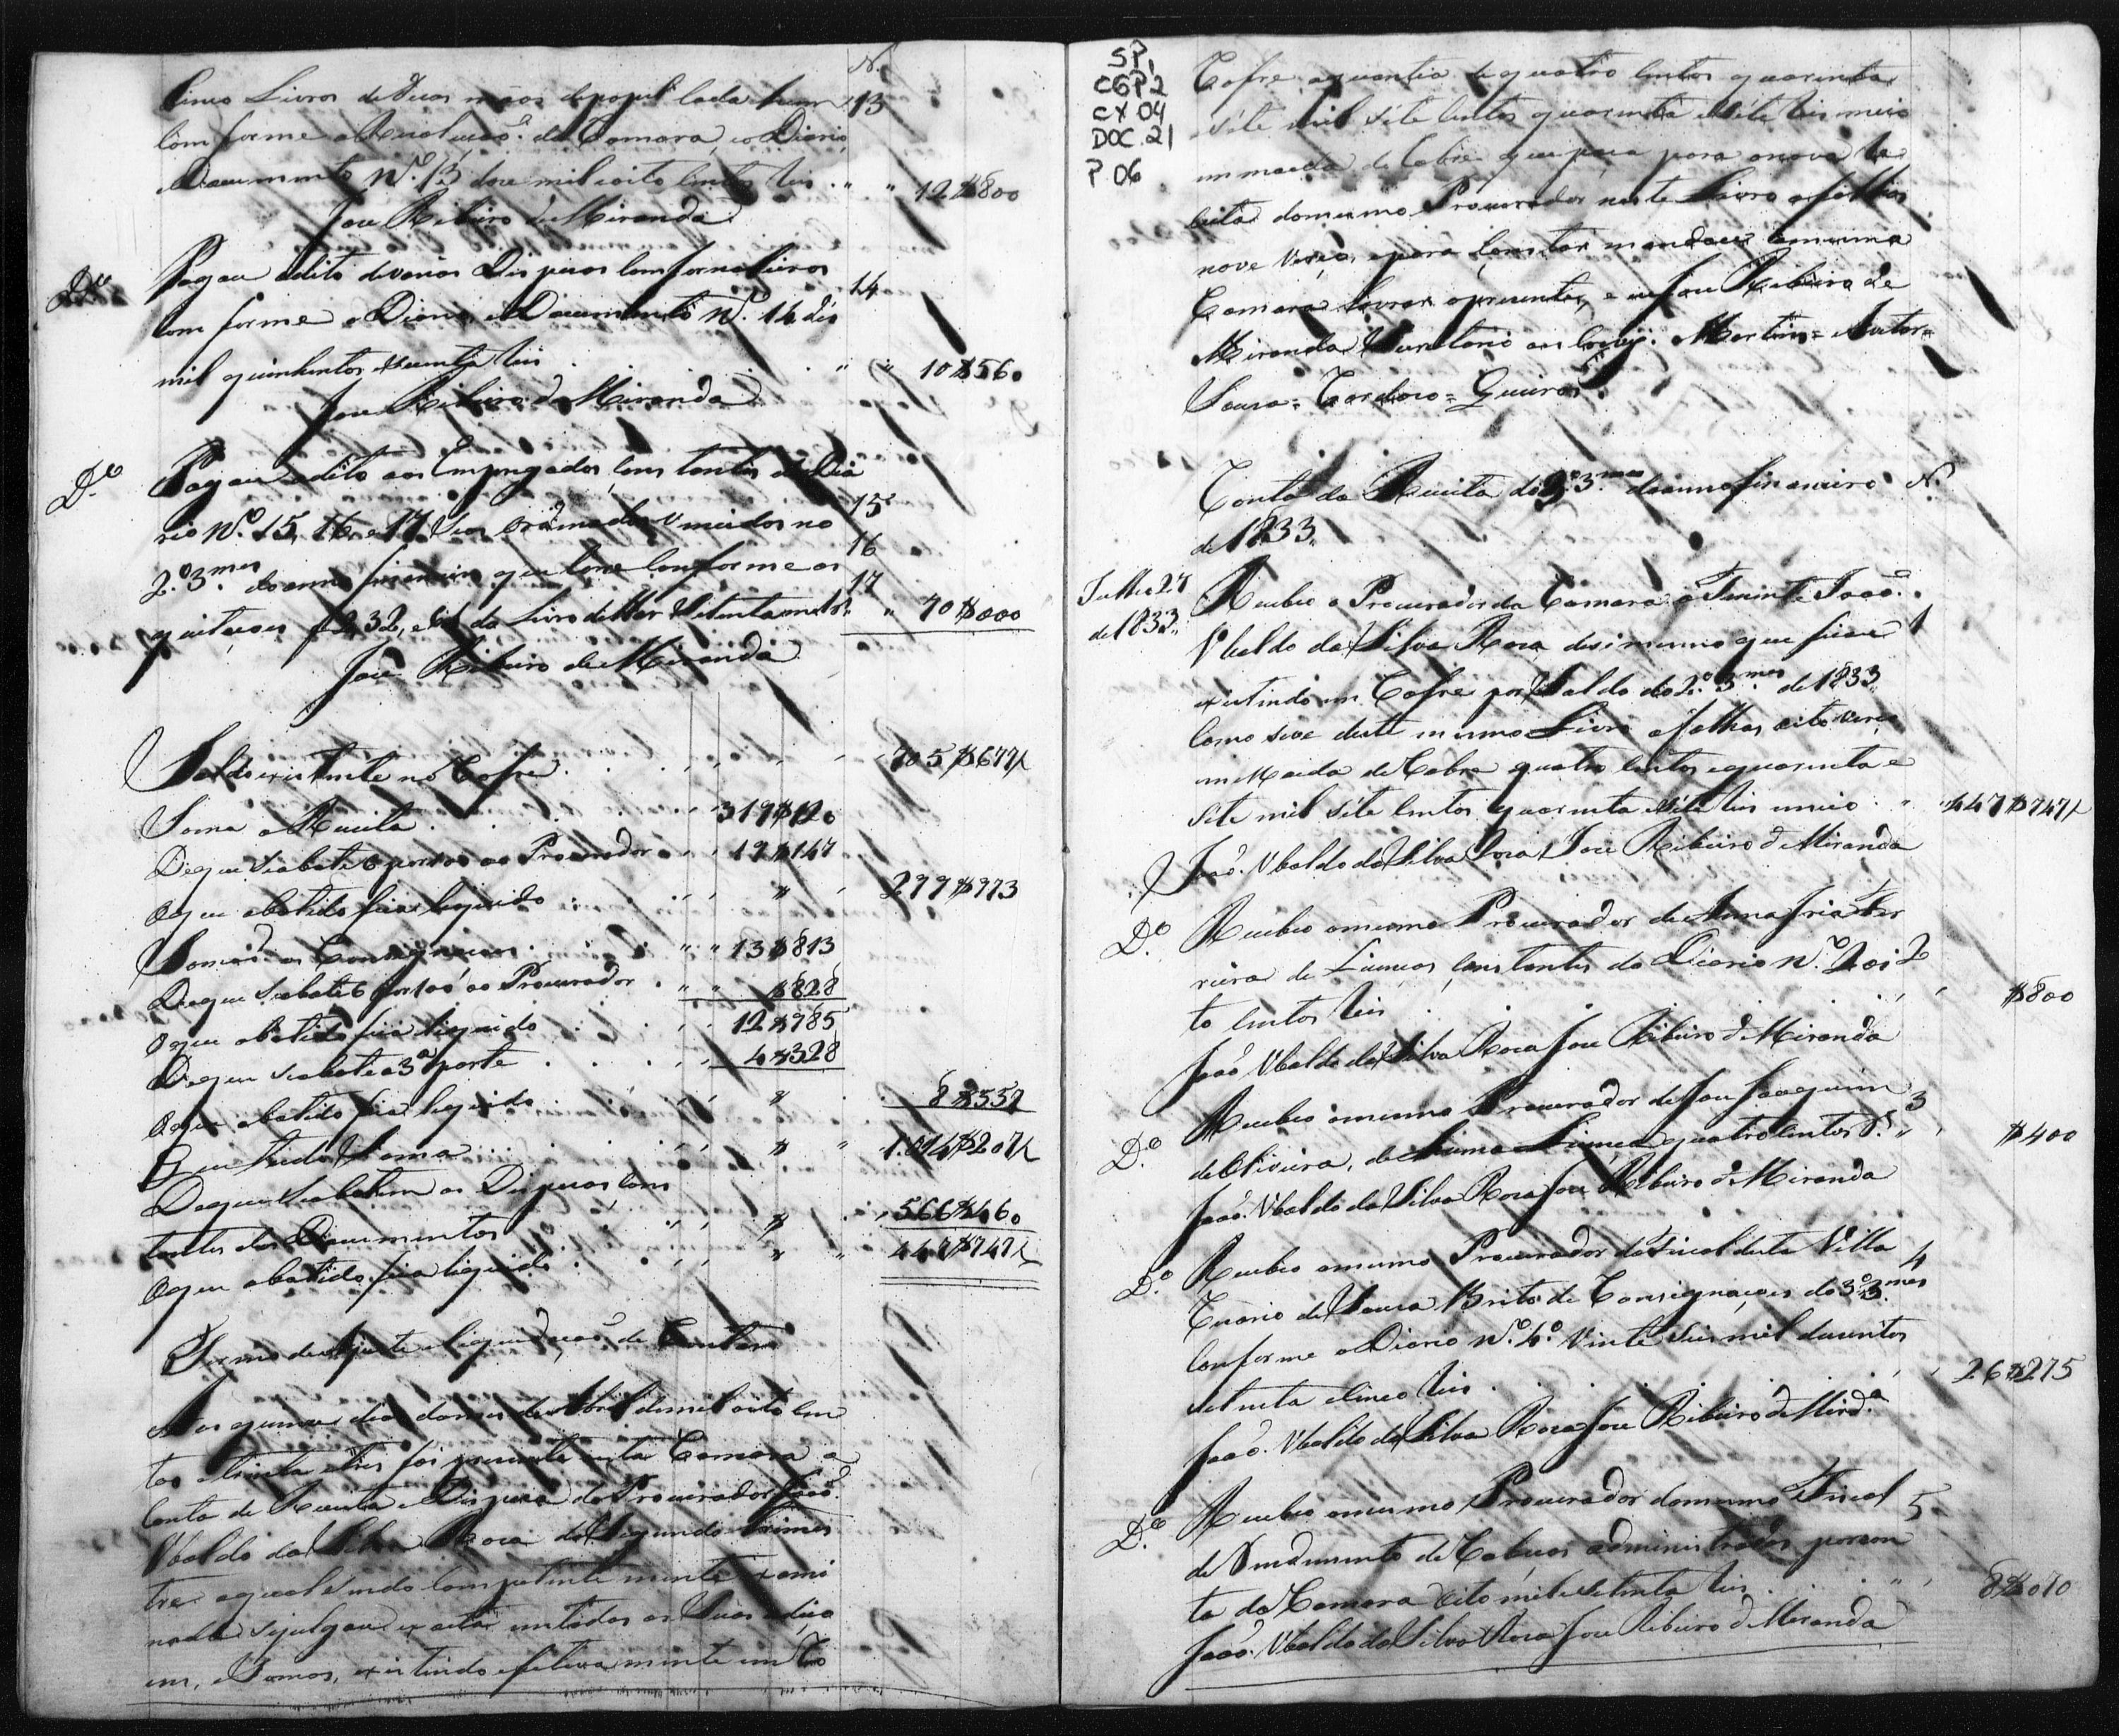 N.
Cinco Livros de duas mãos de papel cada hum 13
conforme a Deval uação da Camara, e o Diario
e Documento N.º 13 doze mil e oito centos reis . " " 12$800
Jose Ribeiro de Miranda
D.º Pagou a dito de varias Dispezas
conforme o Diario, e Documento N.º 14 dés 14
mil quinhentos e secenta reis . . . " " 10$560
Jose Ribeiro de Miranda
D.º Pagou a dito aos Empregados constantes do Dia
rio N.º 15, 16, e 17 Seos ordenados vencidos no 15
2.º 3.mes do anno financeiro que corre conforme as 16
quitações f 2, 32, e do Livro dellas Setenta mil r.s 17 " 70$000
Jose Ribeiro de Miranda
Saldo existente no Cofre . . . 705$677½
Soma a Receita . . . 319$120
De que se abate 6 por 100 ao Procurador . . 19$147
O que abatido fica liquido . . . 299$973
Somão as Consignações . . . 13$813
De que se abate 6 por 100 ao Procurador . $828
O que abatido fica liquido . . . 12$985
De que se abate a 3ª parte . . . 4$328
O que abatido fica liquido . . . 8$557
Que tudo Soma . . . 1.014$207½
De que se abatem as Dispezas cons
tantes dos Documentos . . . 566$460
O que abatido fica liquido . . . 447$747½
Termo de Ajuste e liquidação de Contas
Aos quinze dias do mes de Abril de mil oito cen
tos e trinta e tres foi presente nesta Camara a
Conta de Receita e Dispeza do Procurador João
Ubaldo da Silva Roza do Segundo trimes
tre a qual sendo competentemente exami
nada se julgou exacta em todas as Suas adiço
ens, e Somas, existindo efetivamente em Co
SP,
CGP2
CX 04
DOC. 21
P 06
Cofre a quantia de quatro centos quarenta
sete mil sete centos quarenta e sete reis meio
em moeda de Cobre que para a nova Re
ceita do mesmo Procurador neste Livro a folhas
nove verso, e para constar mandou a mesma
Camara lavrar o presente, e eu Jose Ribeiro de
Miranda Secretario o escrevi. Martins =
Souza = Cardozo = Queiros
Conta da Receita do 3.º 3.mes do anno financeiro N.º
de 1833
Julho 27
de 1833
Recebeo o Procurador da Camara o Tenente João
Ubaldo da Silva Roza desi mesmo que ficou 1
existindo em Cofre por Saldo do 2.º 3.mes de 1833
como se ve deste mesmo Livro a folhas oito verso
em Moeda de Cobre quatro centos e quarenta e
sete mil sete centos quarenta e sete reis e meio . " 447$747½
João Ubaldo da Silva Roza Jose Ribeiro d Miranda
D.º Recebeo o mesmo Procurador de Anna
reira de Licenças constantes do Diario N.º 2 oi 2
to centos reis . . . $800
João Ubaldo da Silva Roza Jose Ribeiro d Miranda
D.º Recebeo o mesmo Procurador de Jose Joaquim 3
de Oliveira, de huma Licença quatro centos r.s " $400
João Ubaldo da Silva Roza Jose Ribeiro d Miranda
D.º Recebeo o mesmo Procurador do Fiscal desta Villa 4
de Souza Brito de Consignaçoes do 3.º 3.mes
conforme o Diario N.º 4.º Vinte Seis mil duzentos
setenta e cinco reis . . . 26$275
João Ubaldo da Silva Roza Jose Ribeiro d Mird.ª
D.º Recebeo o mesmo Procurador do mesmo Fiscal 5
de Rendimento de Cabeças administradas por con
ta da Camara Oito mil e Setenta reis . . . 8$070
João Ubaldo da Silva Roza Jose Ribeiro d Miranda